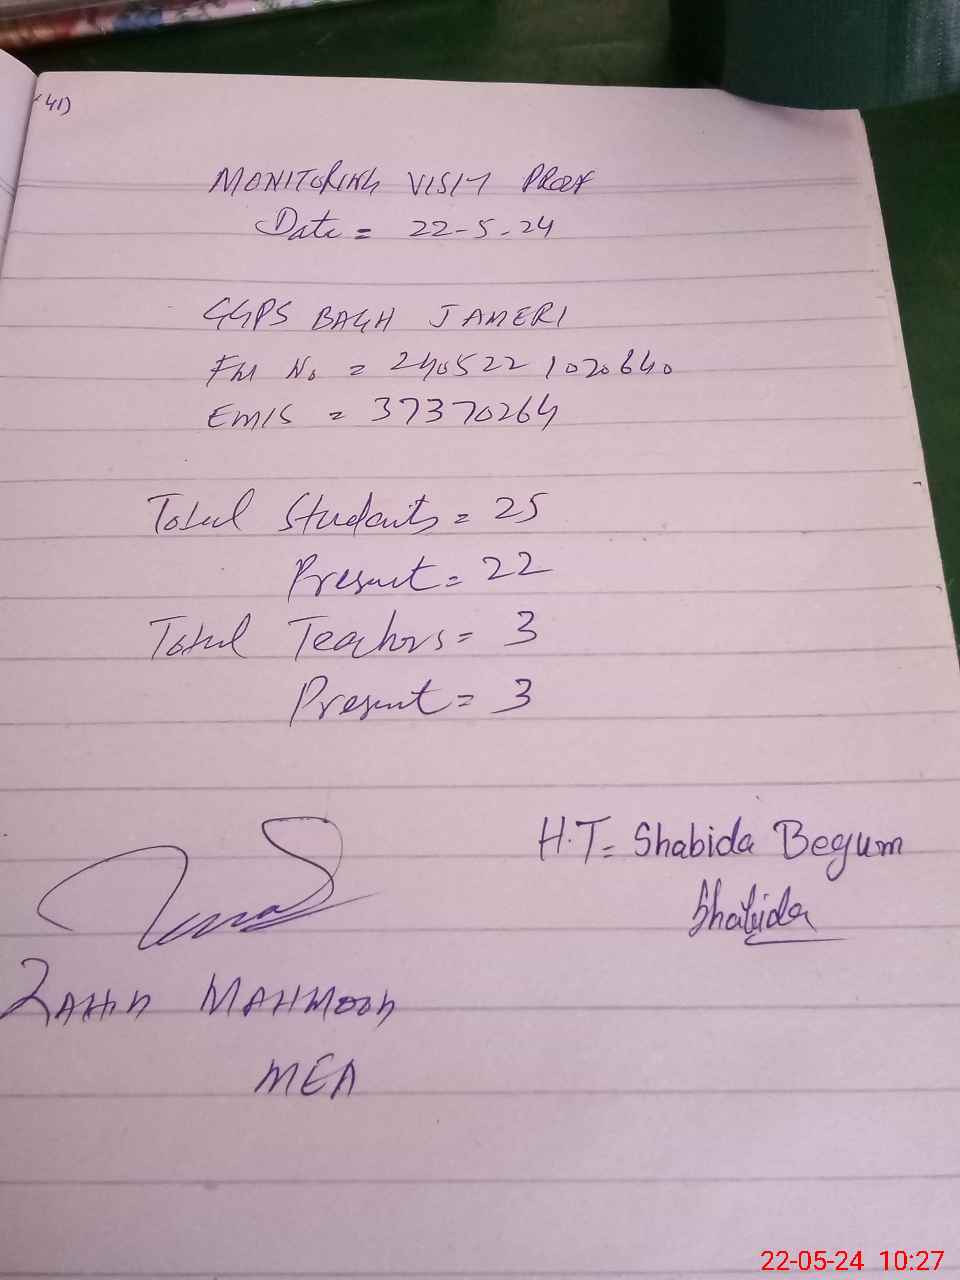 (41)
MONITORING VISIT PROOF
Date = 22-5-24
GGPS BAGH JAMERI
FM No = 240522 1020640
EMIS = 37370264
Total Students = 25
Present = 22
Total Teachers = 3
Present = 3
H.T = Shabida Begum
Shabida
MAHMOOD
MEA
22-05-24 10:27